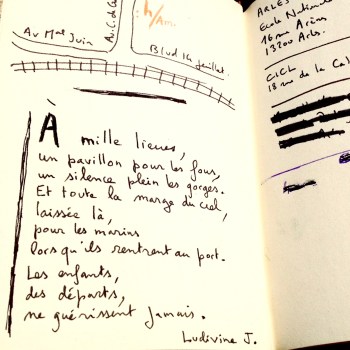 Av Mal Juin
Av. C. de G
h/Am.
Blvd 14 Juillet.
À mille lieues,
un pavillon pour les fous,
un silence plein les gorges.
Et toute la marge du ciel,
laissée là,
pour les marins
lorsqu'ils rentrent au port.
Les enfants,
des départs,
ne guérissent jamais.
Ludivine J.
ARLES
Ecole Nationale
16 rue Arènes
13200 Arles.
CICL
18 rue de la Cal